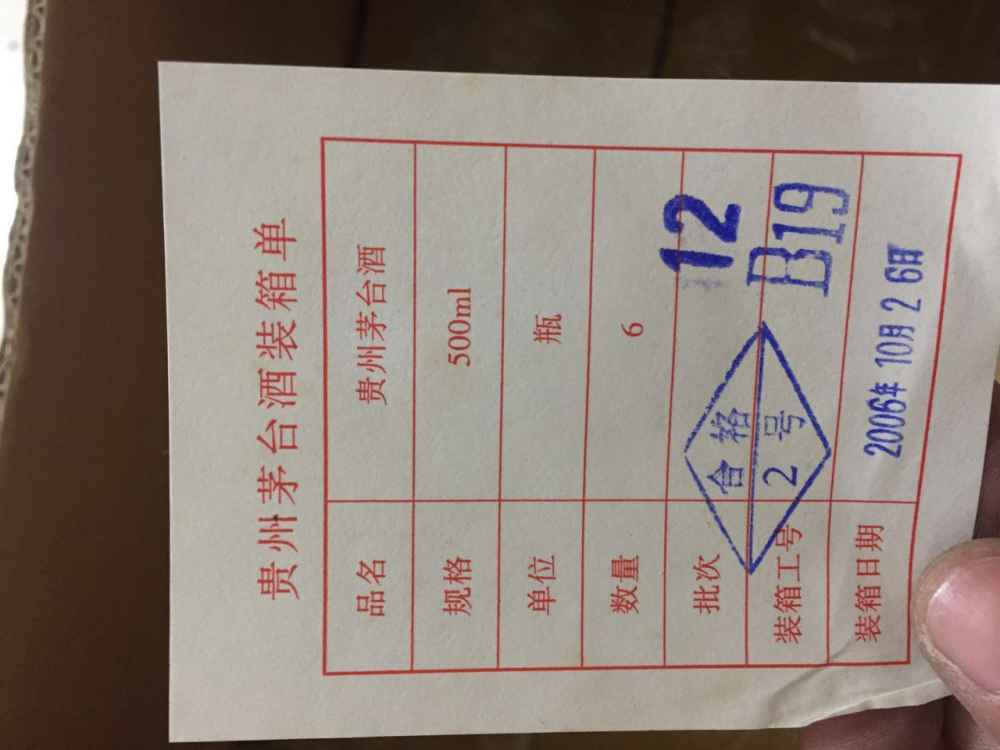 贵州茅台酒装箱单
品名 贵州茅台酒
规格 500ml
单位 瓶
数量 6
批次 12
装箱工号 B19
合格
2号
装箱日期 2006年10月26日